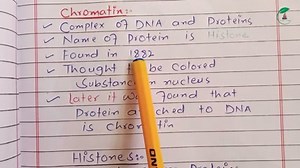 Chromatin:-
✓ Complex of DNA and Proteins
✓ Name of Protein is Histone
✓ Found in 1882
✓ Thought be Colored
Substance nucleus
✓ Later it was found that
Protein attached to DNA
is chromatin
Histones:-